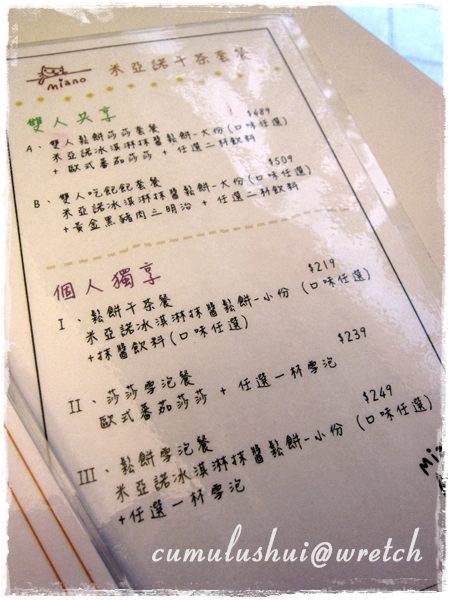 miano
米亞諾下茶套餐
雙人共享
$489
A、雙人鬆餅莎莎套餐
米亞諾冰淇淋抹醬鬆餅-大份(口味任選)
+歐式蕃茄莎莎 + 任選二杯飲料
$509
B、雙人吃飽飽套餐
米亞諾冰淇淋抹醬鬆餅-大份(口味任選)
+黃金黑豬肉三明治 + 任選二杯飲料
個人獨享
$219
I、鬆餅下茶餐
米亞諾冰淇淋抹醬鬆餅-小份 (口味任選)
+抹醬飲料(口味任選)
$239
II、莎莎雪泡餐
歐式蕃茄莎莎 + 任選一杯雪泡
$249
III、鬆餅雪泡餐
米亞諾冰淇淋抹醬鬆餅-小份 (口味任選)
+任選一杯雪泡
cumulushui@wretch